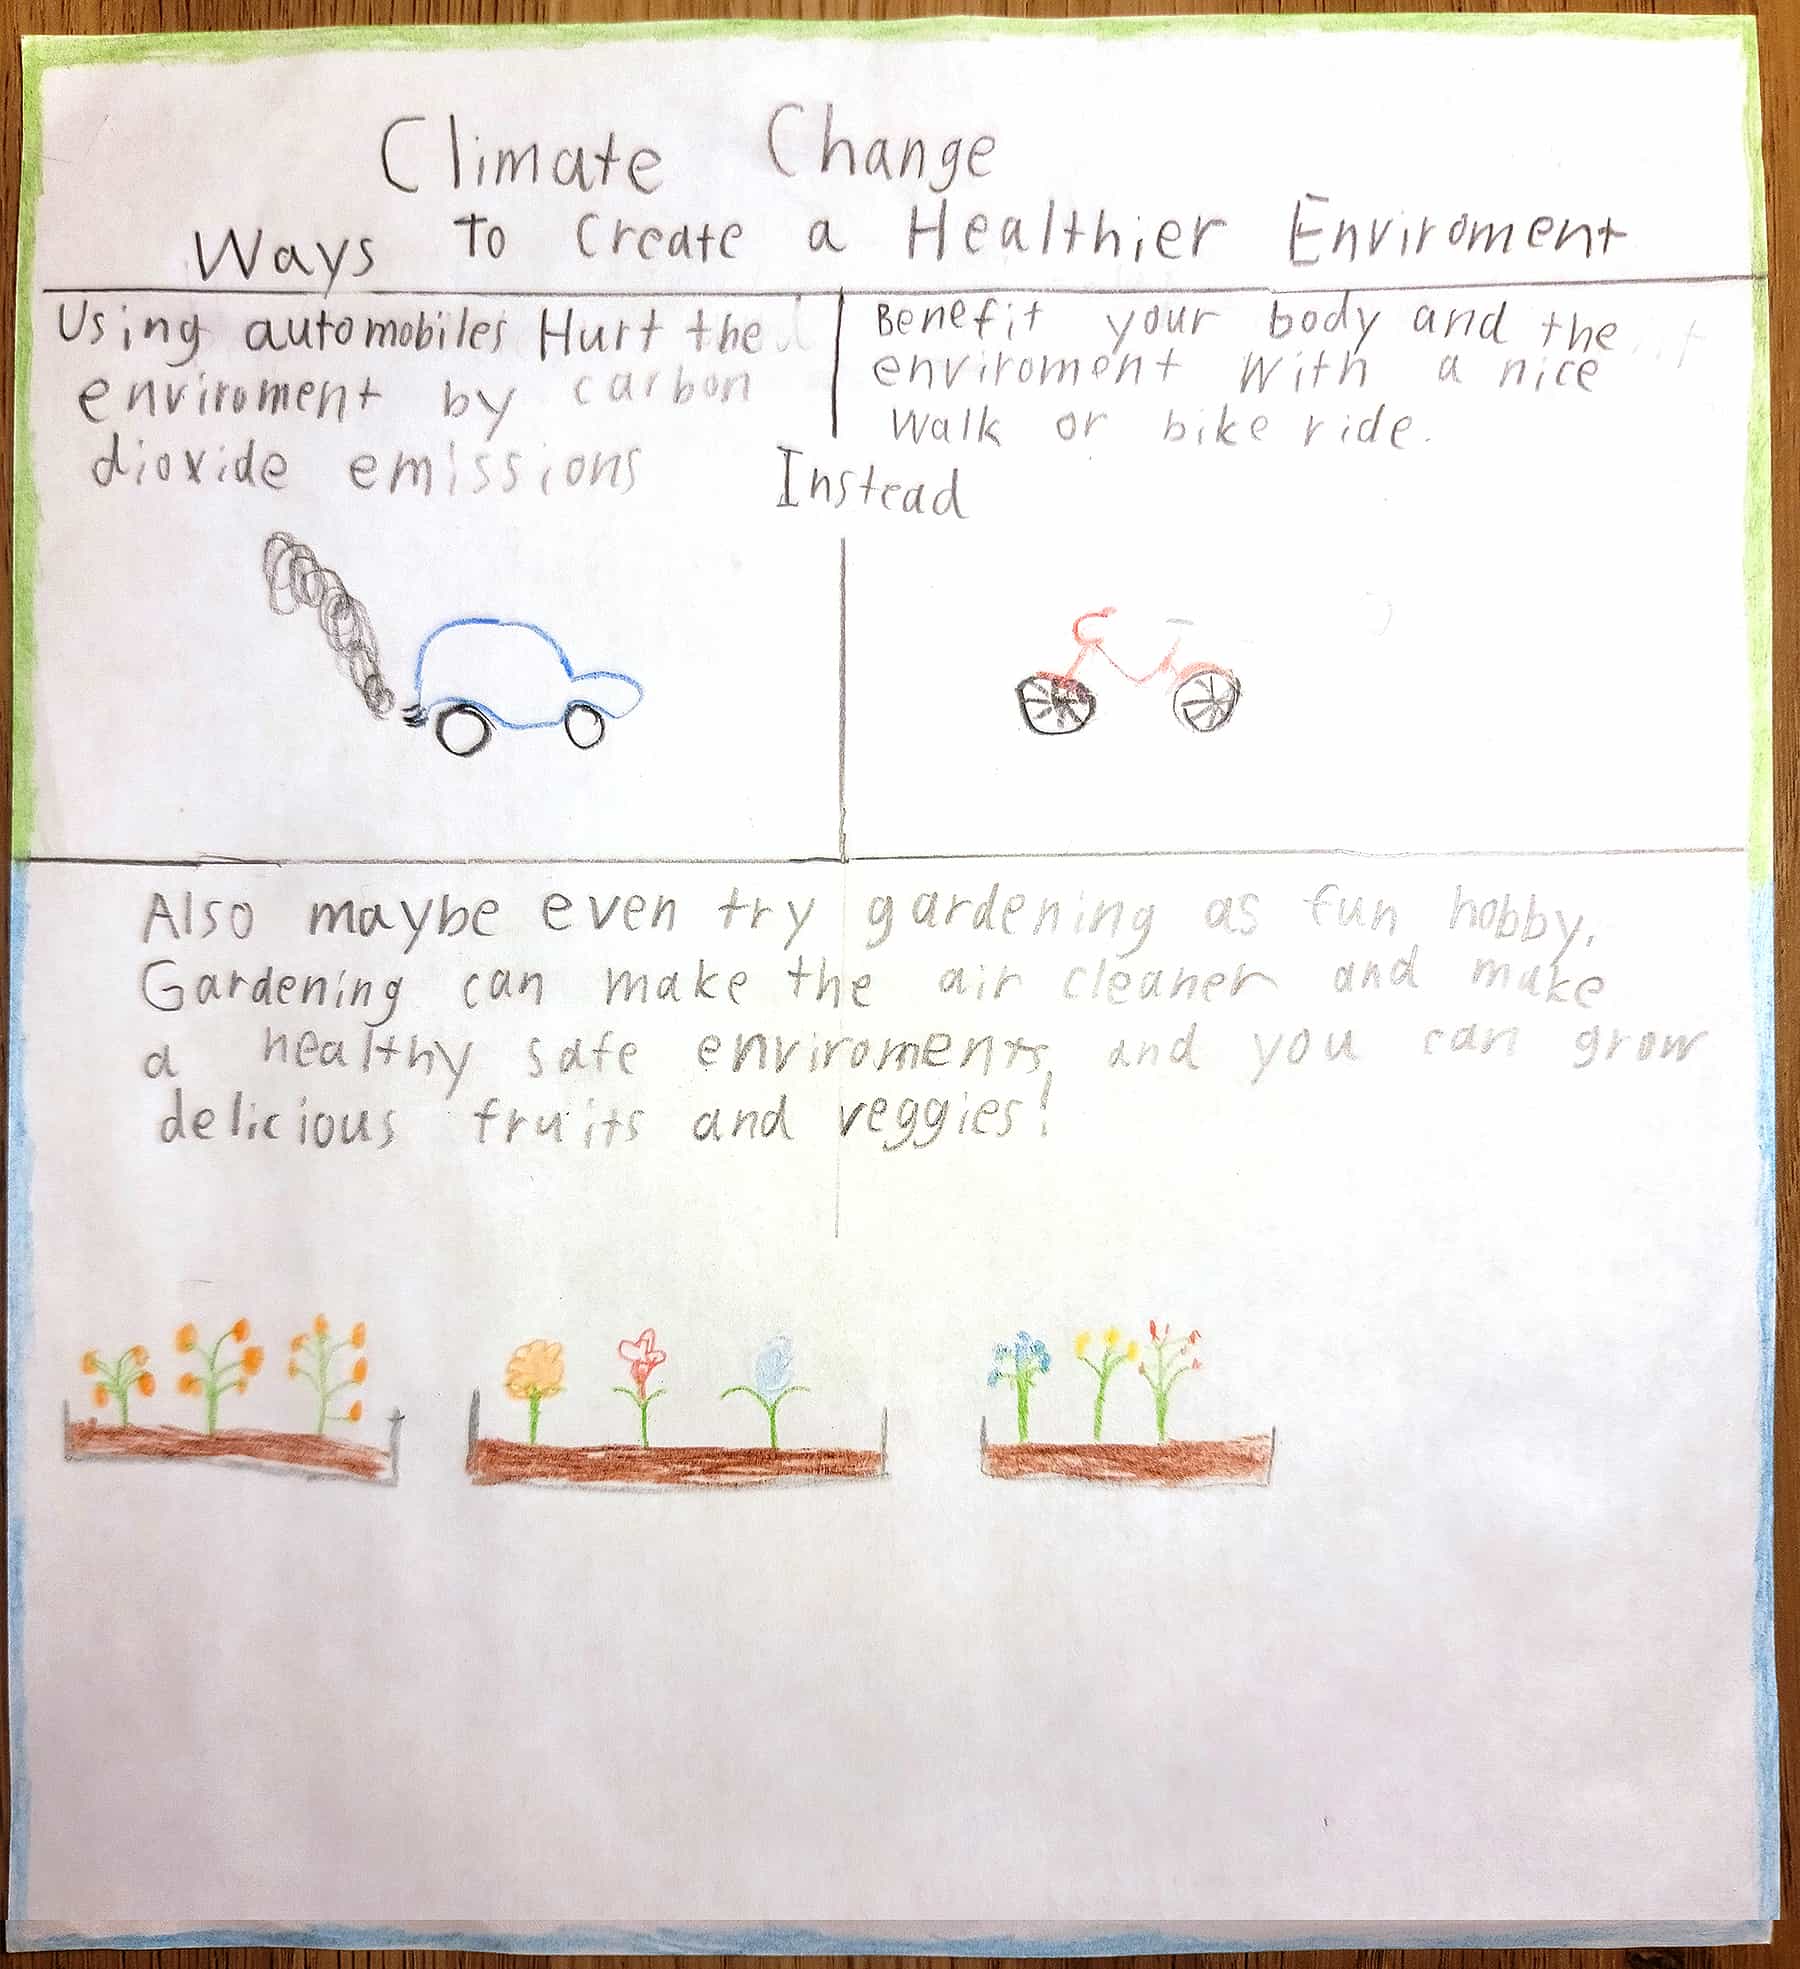 Climate Change
Ways to Create a Healthier Enviroment
Using automobiles Hurt the
enviroment by carbon
dioxide emissions
Instead
Benefit your body and the
enviroment with a nice
walk or bike ride.
Also maybe even try gardening as fun hobby.
Gardening can make the air cleaner and make
a healthy safe enviroments, and you can grow
delicious fruits and veggies!